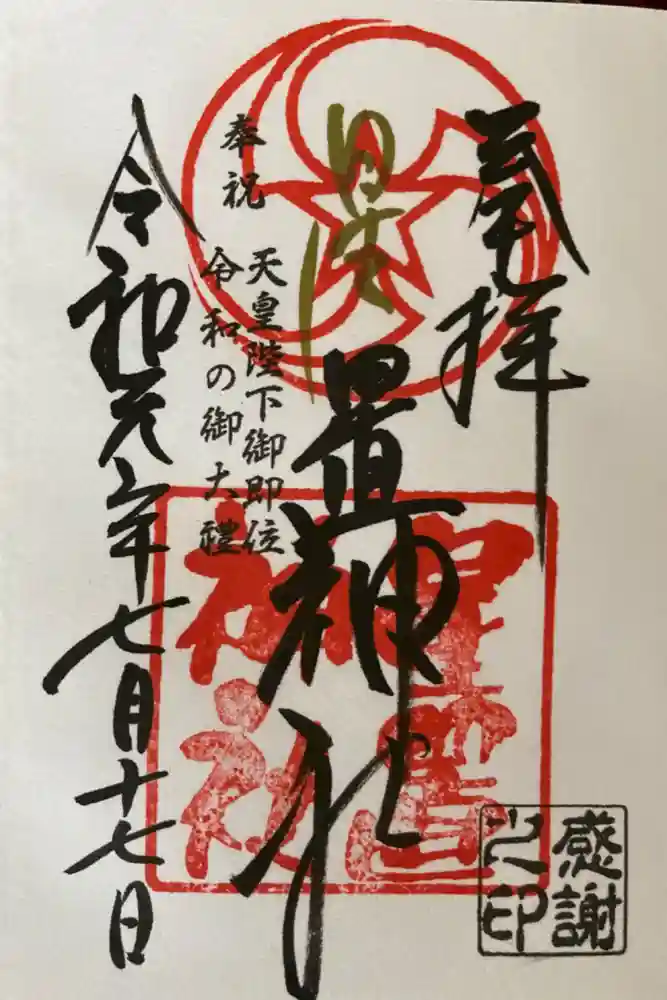 奉拝
星置神社
奉祝
天皇陛下御即位
令和の御大禮
令和元年七月十七日
星置
神社
感謝
之印